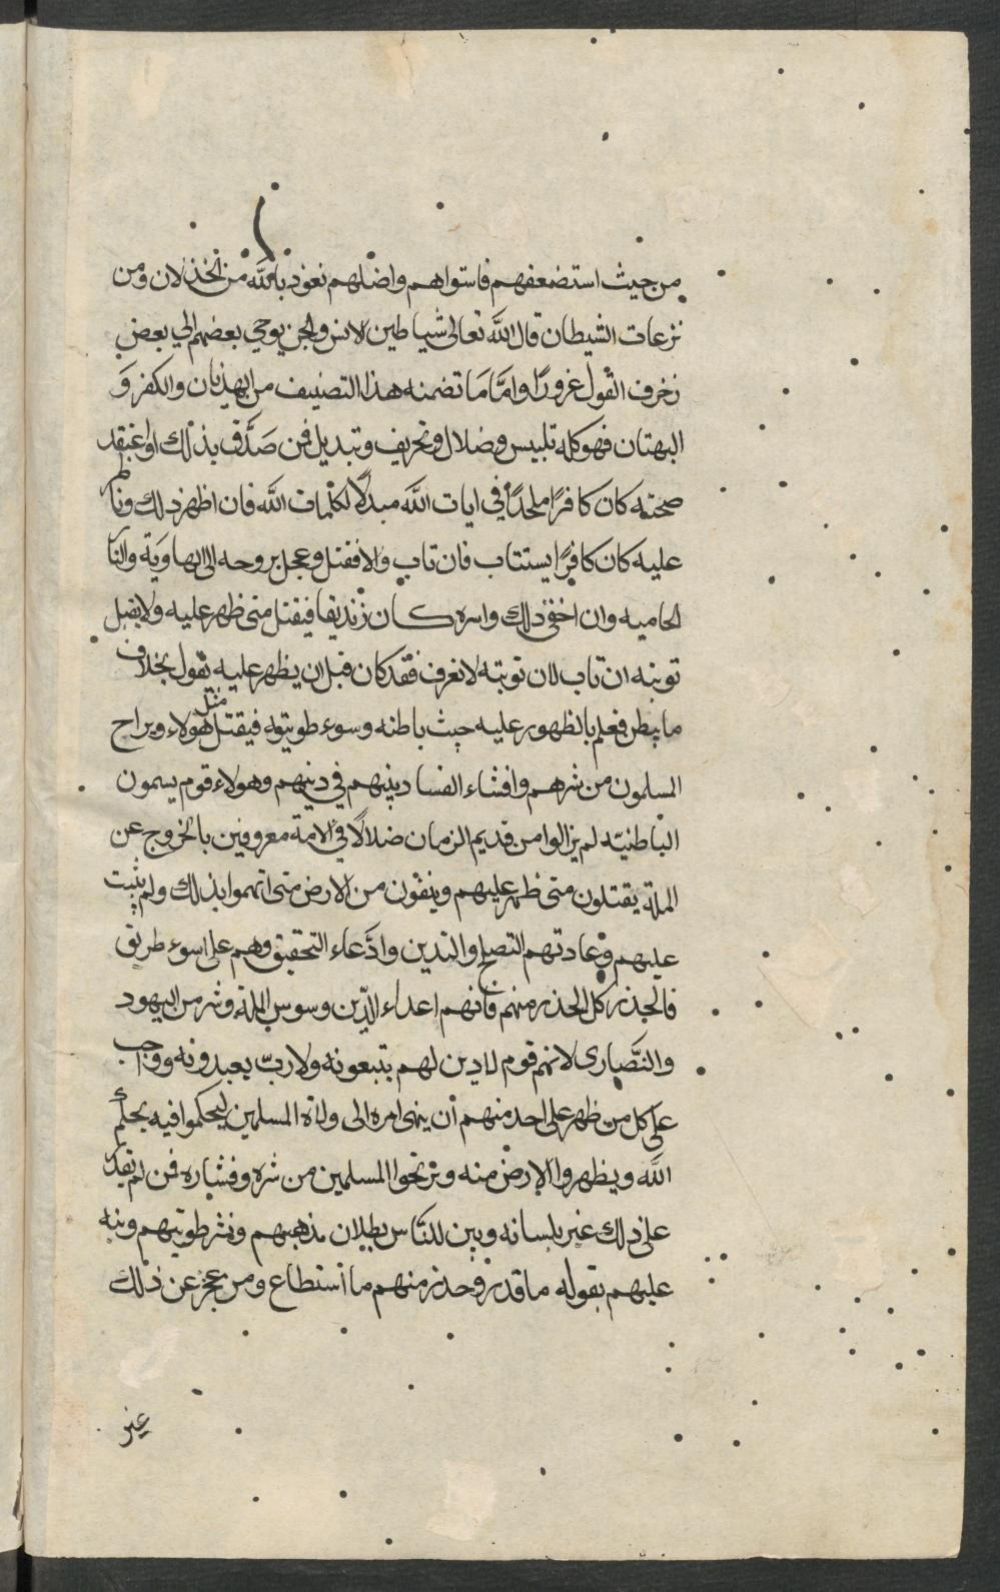 من حيث استضعفهم فاستواهم واضلهم نعوذ بالله من الخذلان ومن
نزعات الشيطان قال الله تعالى شياطين الانس والجن يوحي بعضهم الى بعض
زخرف القول غرورًا واما ما تضمنه هذا التصنيف من الهذيان والكفر و
البهتان فهو كله تلبيس وضلال وتحريف وتبديل فمن صدَّق بذلك او اعتقد
صحته كان كافرًا ملحدًا في ايات الله مبدلًا لكلمات الله فان اظهر ذلك وناظر
عليه كان كافرًا يستتاب فان تاب والا فقتل وعجل بروحه الى الهاوية والنار
الحاميه وان اخفى ذلك واسره كان زنديقا فيقتل متى ظهر عليه ولا يقبل
توبته ان تاب لان توبته لا تعرف فقد كان قبل ان يظهر عليه تقول بخلاف
ما يبطن فعلم بالظهور عليه خبث باطنه وسوء طويتوه فيقتل مثل هولاء ويراح
المسلمون من شرهم وافشاء الفساد بينهم في دينهم وهولاء قوم يسمون
الباطنيه لم يزالوا من قديم الزمان ضلالًا في الامة معروفين بالخروج عن
الملة يقتلون متى ظهر عليهم وينفون من الارض متى اتهموا بذلك ولم يثبت
عليهم وعادتهم التصلح والتدين وادَّعاء التحقيق وهم على اسوء طريق
فالحذر كل الحذر منهم فانهم اعداء الدّين وسوس الملة وشر من اليهود
والنصارى لانهم قوم لا دين لهم يتبعونه ولا ربّ يعبدونه وواجب
على كل من ظهر على احد منهم أن ينهى امره الى ولاة المسلمين ليحكموا فيه بحكم
الله ويظهروا الارض منه وتريحوا المسلمين من شره وفشاره فمن لم يقدر
على ذلك غير بلسانه وبين للناس بطلان مذهبهم ونشر طويتهم ونبه
عليهم بقوله ما قدر وحذر منهم ما استطاع ومن عجز عن ذلك
غير